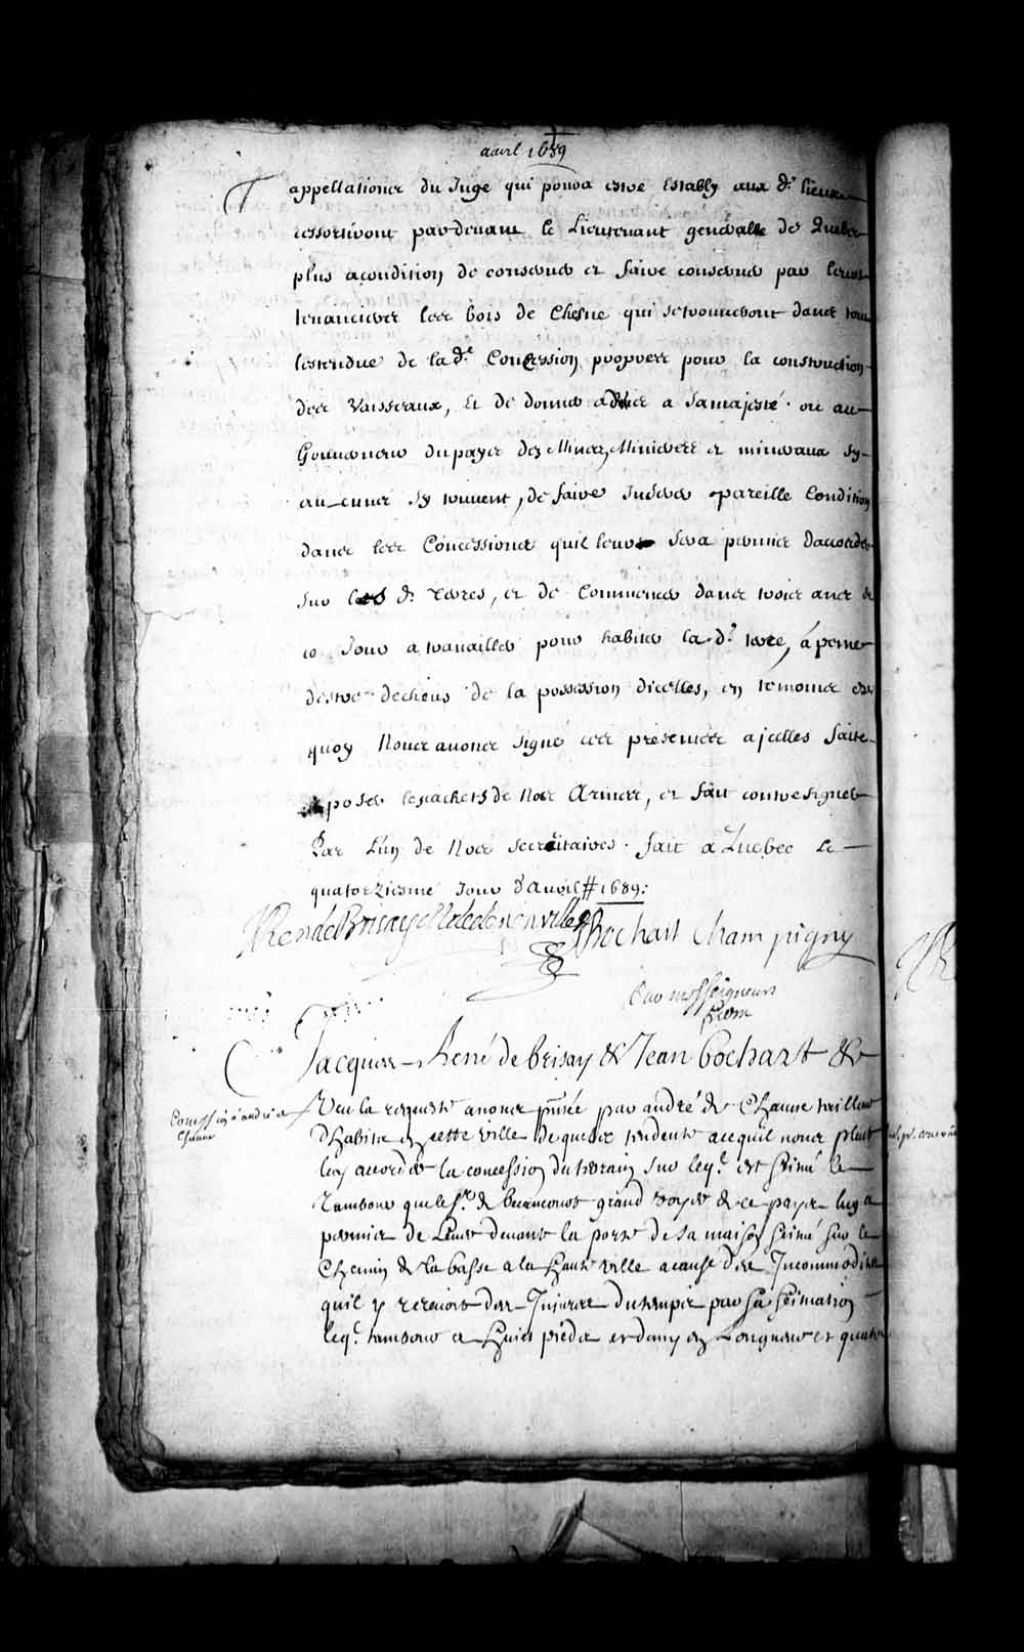 avril 1689
appellations du Juge qui poura estre Estably aux d. lieux
ressortiront pardevant le Lieutenant generalle de Quebec
plus acondition de conserver et faire conserver par
tenanciers les bois de Chesne qui setrouveront dans
lestendue de lad.e Concession propres pour la construction
des Vaisseaux, Et de donner advis a Samajesté ou au
Gouverneur dupays des Mines, Minieres et mineraux sy
aucunes sy trouvent, de faire Inserer pareille Condition
dans les Concessions quil leur sera permis Daccorder
sur les d. terres, et de Commencer dans trois ans de
ce Jour a travailler pour habiter la d.e terre, á peine
destre decheus de la possession dicelles, en temoins de
quoy Nous avons signé ces presentes ajcelles faite
aposer lescachets de Nos Armes, et fait contresigner
Par L'un de Nos secretaires. fait a Quebec le
quatorziesme Jour d'avril # 1689:
J Rene de Brisay M de denonville Bochart Champigny
Par messeigneurs
Jacques René de brisay & Jean bochart &c
Concession a andré de
Chaune
Veu la requeste anous p̃ntée par andré de Chaune tailleur
d'habits en cette ville de quebec tendente acequil nous plust
luy accorder la concession duterrain sur leq.l est scitué le
Tambour que le S.r de becancourt grand voyer de ce pays luy a
permis de Lever devant la porte de sa maison scitué sur le
Chemin de la basse a la haute ville acause des Incommodites
quil y recevoit des Injures dutemps par sa scituation
leq.l tambour a huict pieds et demy en Longueur et quatre